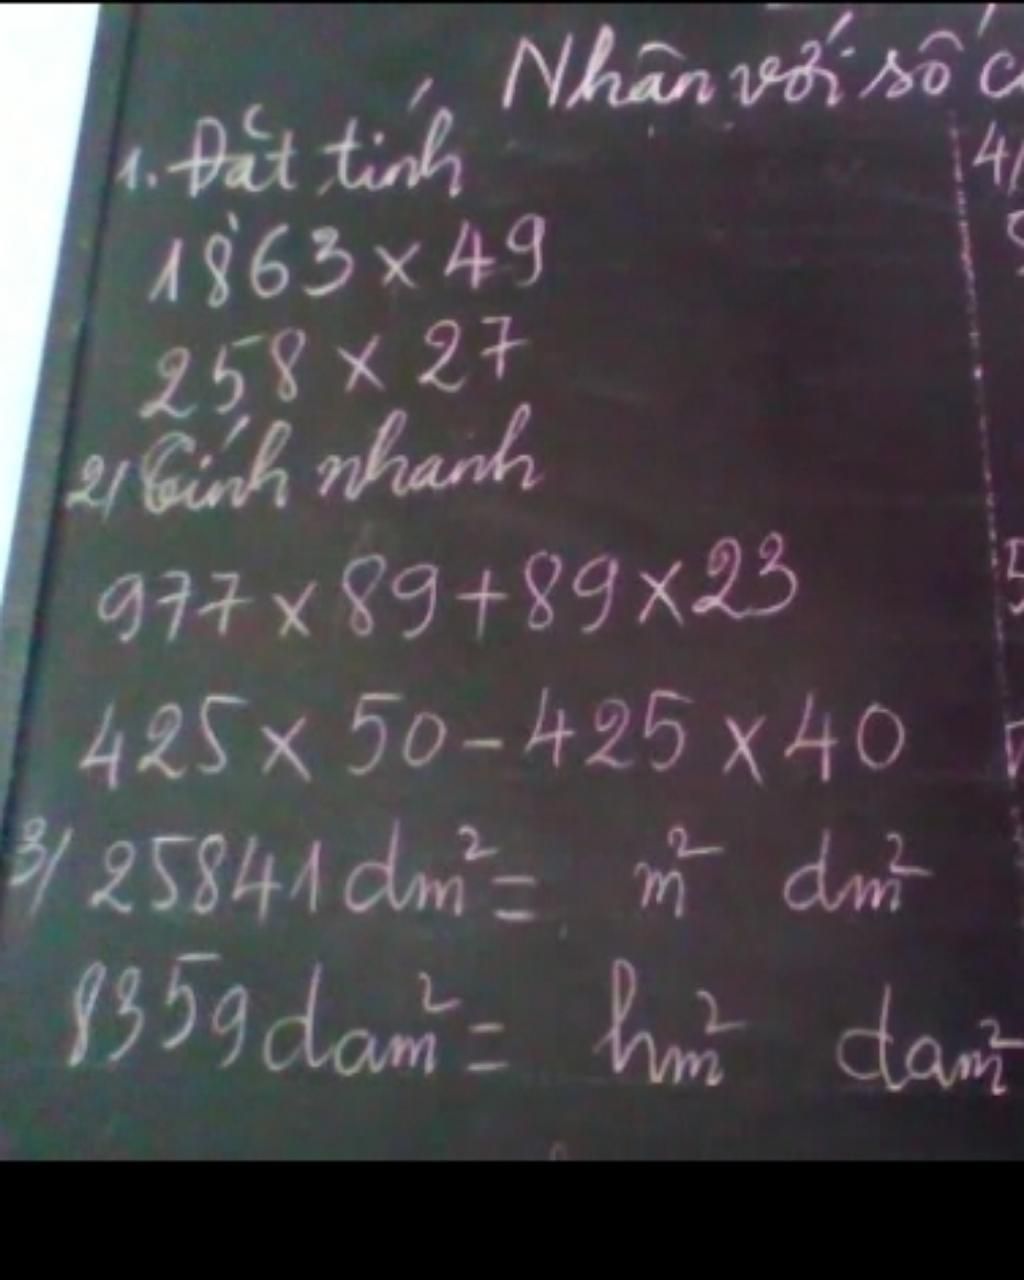 Nhân với số
1. Đăt tính
1863 x 49
258 x 27
2/ Tính nhanh
977 x 89 + 89 x 23
425 x 50 - 425 x 40
3/ 25841 dm² = m² dm²
8359 dam² = hm² dam²
4/